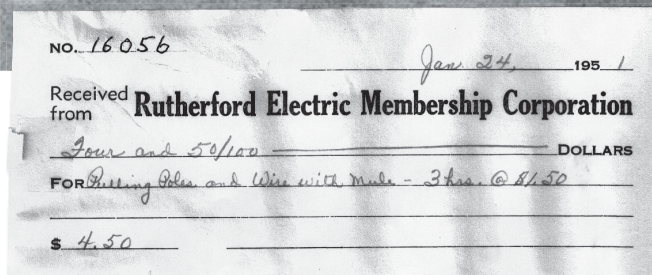 NO. 16056
Jan. 24, 1951
Received from Rutherford Electric Membership Corporation
Four and 50/100 DOLLARS
FOR Pulling Poles and Wire with Mule - 3 hrs. @ $1.50
$ 4.50